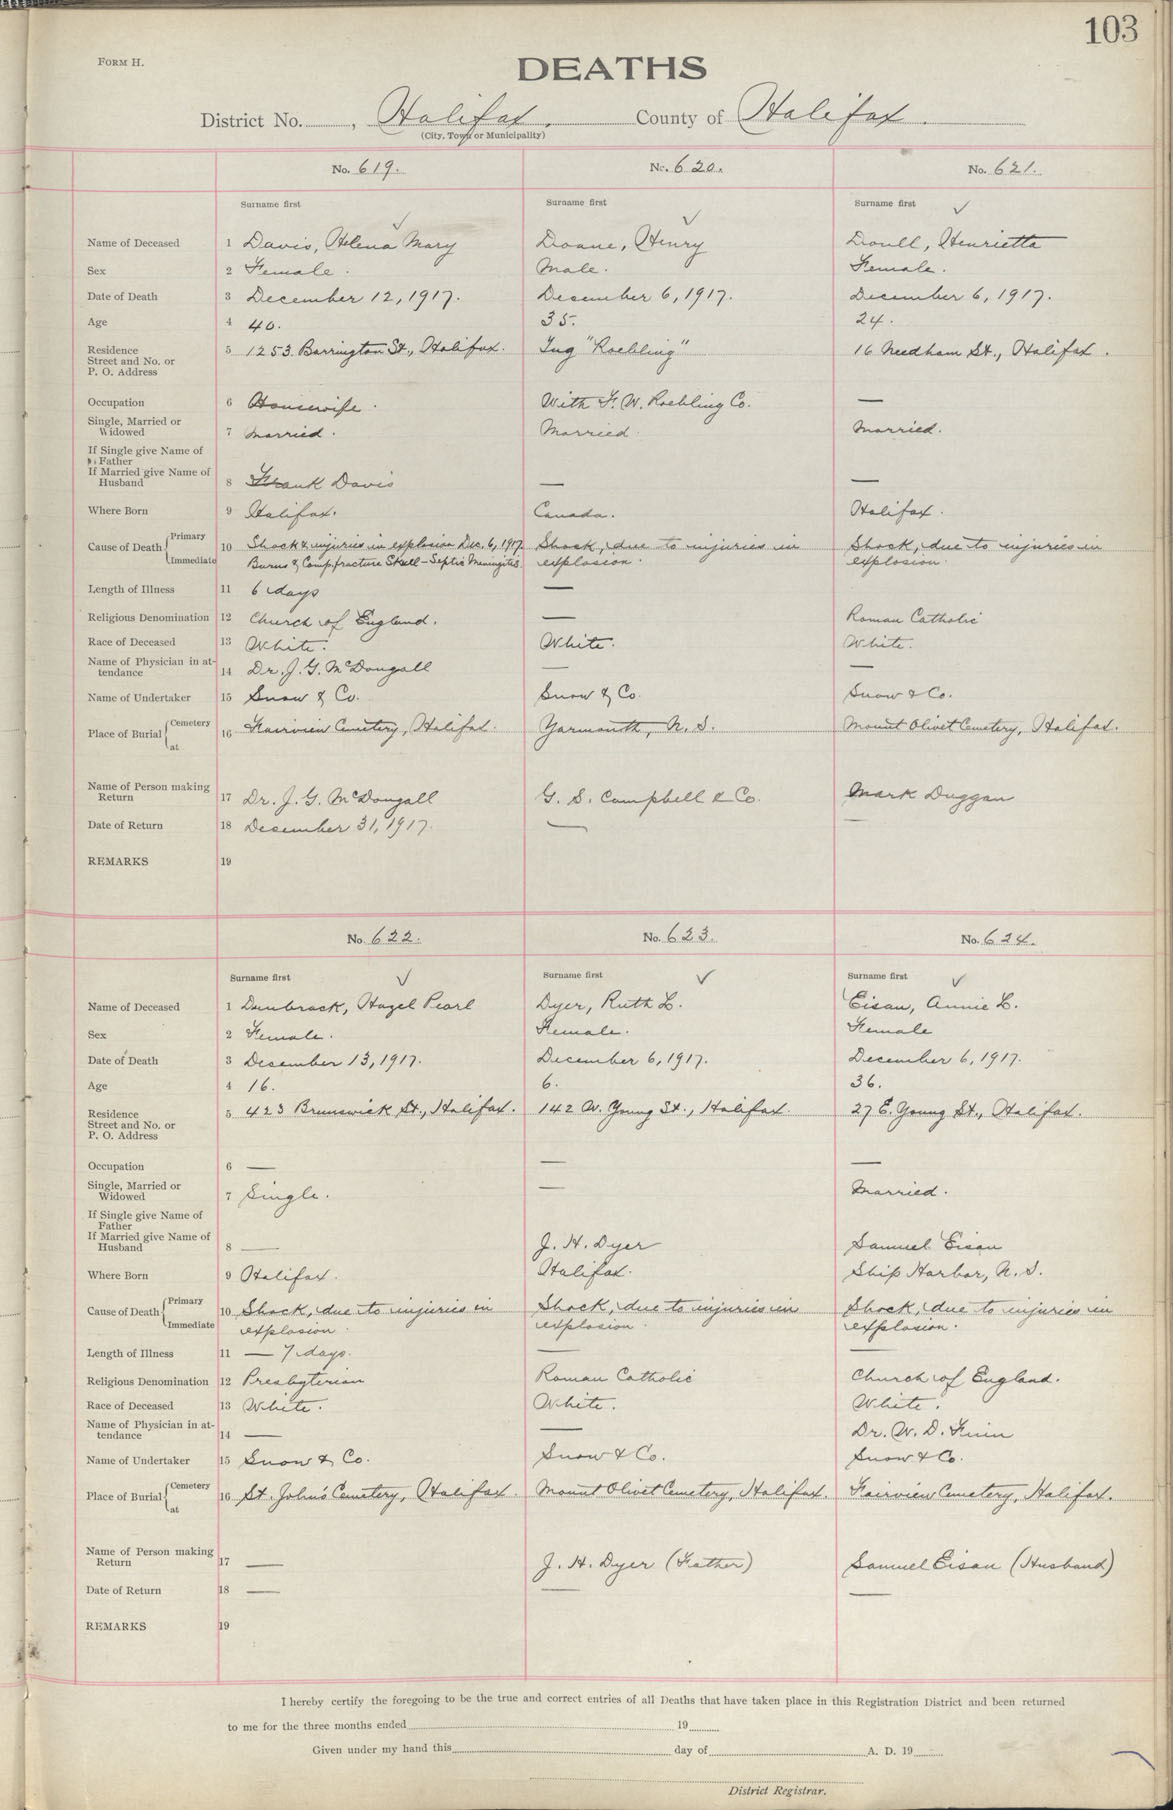 103
FORM H.
DEATHS
District No. , Halifax. County of Halifax.
(City, Town or Municipality)
No. 619. No. 620. No. 621.
Surname first Surname first Surname first
Name of Deceased 1 Davis, Helena Mary Doane, Henry Doull, Henrietta
Sex 2 Female. Male. Female.
Date of Death 3 December 12, 1917. December 6, 1917. December 6, 1917.
Age 4 40. 35. 24.
Residence 5 1253 Barrington St., Halifax. Tug "Roebling" 16 Needham St., Halifax.
Street and No. or
P. O. Address
Occupation 6 Housewife. With F. W. Roebling Co. —
Single, Married or
Widowed 7 Married. Married Married.
If Single give Name of
Father
If Married give Name of
Husband 8 Frank Davis — —
Where Born 9 Halifax. Canada. Halifax.
Cause of Death { Primary 10 Shock & injuries in explosion Dec. 6, 1917. Shock, due to injuries in Shock, due to injuries in
Immediate Burns & Comp. fracture Skull - Septic Meningitis explosion. explosion.
Length of Illness 11 6 days —
Religious Denomination 12 Church of England. — Roman Catholic
Race of Deceased 13 White. White. White.
Name of Physician in at-
tendance 14 Dr. J. G. McDougall — —
Name of Undertaker 15 Snow & Co. Snow & Co. Snow & Co.
Place of Burial { Cemetery 16 Fairview Cemetery, Halifax. Yarmouth, N. S. Mount Olivet Cemetery, Halifax.
at
Name of Person making
Return 17 Dr. J. G. McDougall G. S. Campbell & Co. Mark Duggan
Date of Return 18 December 31, 1917. — —
REMARKS 19
No. 622. No. 623. No. 624.
Surname first Surname first Surname first
Name of Deceased 1 Dumbrack, Hazel Pearl Dyer, Ruth L. Eisan, Annie L.
Sex 2 Female. Female. Female
Date of Death 3 December 13, 1917. December 6, 1917. December 6, 1917.
Age 4 16. 6. 36.
Residence 5 423 Brunswick St., Halifax. 142 W. Young St., Halifax. 27 E. Young St., Halifax.
Street and No. or
P. O. Address
Occupation 6 — — —
Single, Married or
Widowed 7 Single. — Married.
If Single give Name of
Father
If Married give Name of
Husband 8 — J. H. Dyer Samuel Eisan
Where Born 9 Halifax. Halifax. Ship Harbor, N. S.
Cause of Death { Primary 10 Shock, due to injuries in Shock, due to injuries in Shock, due to injuries in
Immediate explosion. explosion. explosion.
Length of Illness 11 — 7 days. — —
Religious Denomination 12 Presbyterian Roman Catholic Church of England.
Race of Deceased 13 White. White. White.
Name of Physician in at-
tendance 14 — — Dr. W. D. Finn
Name of Undertaker 15 Snow & Co. Snow & Co. Snow & Co.
Place of Burial { Cemetery 16 St. John's Cemetery, Halifax. Mount Olivet Cemetery, Halifax. Fairview Cemetery, Halifax.
at
Name of Person making
Return 17 — J. H. Dyer (Father) Samuel Eisan (Husband)
Date of Return 18 — — —
REMARKS 19
I hereby certify the foregoing to be the true and correct entries of all Deaths that have taken place in this Registration District and been returned
to me for the three months ended 19
Given under my hand this day of A. D. 19
District Registrar.